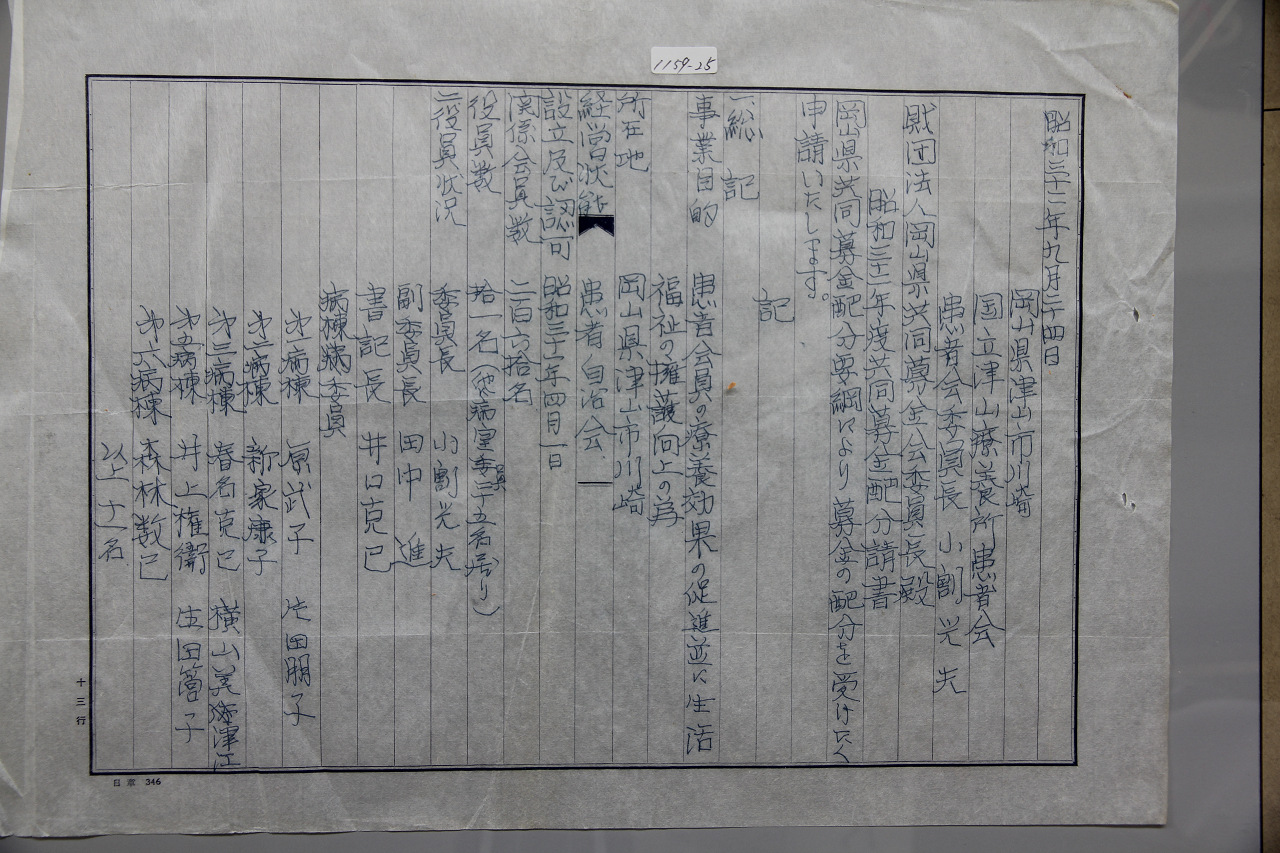 1159-25
昭和三十二年九月二十四日
岡山県津山市川崎
国立津山療養所患者会
患者会委員長 小割光夫
財団法人岡山県共同募金会委員長殿
昭和三十二年度共同募金配分請書
岡山県共同募金配分要綱により募金の配分を受けたく
申請いたします。
記
一、総記
事業目的 患者会員の療養効果の促進並に生活
福祉の擁護向上の為
所在地 岡山県津山市川崎
経営状態 患者自治会
設立及び認可 昭和三十一年四月一日
関係会員数 二百六拾名
役員数 拾一名(他病室委員三十五名居り)
二、役員状況 委員長 小割光夫
副委員長 田中進
書記長 井口克巳
病棟委員
第一病棟 原武子 片田朋子
第二病棟 新家康子
第三病棟 春名克巳 横山美津江
第五病棟 井上権衛 生田 子
第六病棟 森林数巳
以上 十一名
十三行
日章 346